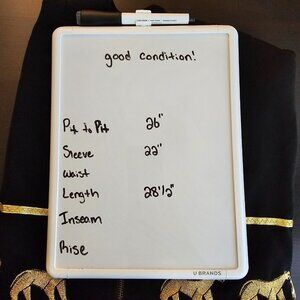 good condition!
Pit to Pit 26"
Sleeve 22"
Waist
Length 28 1/2"
Inseam
Rise
U BRANDS